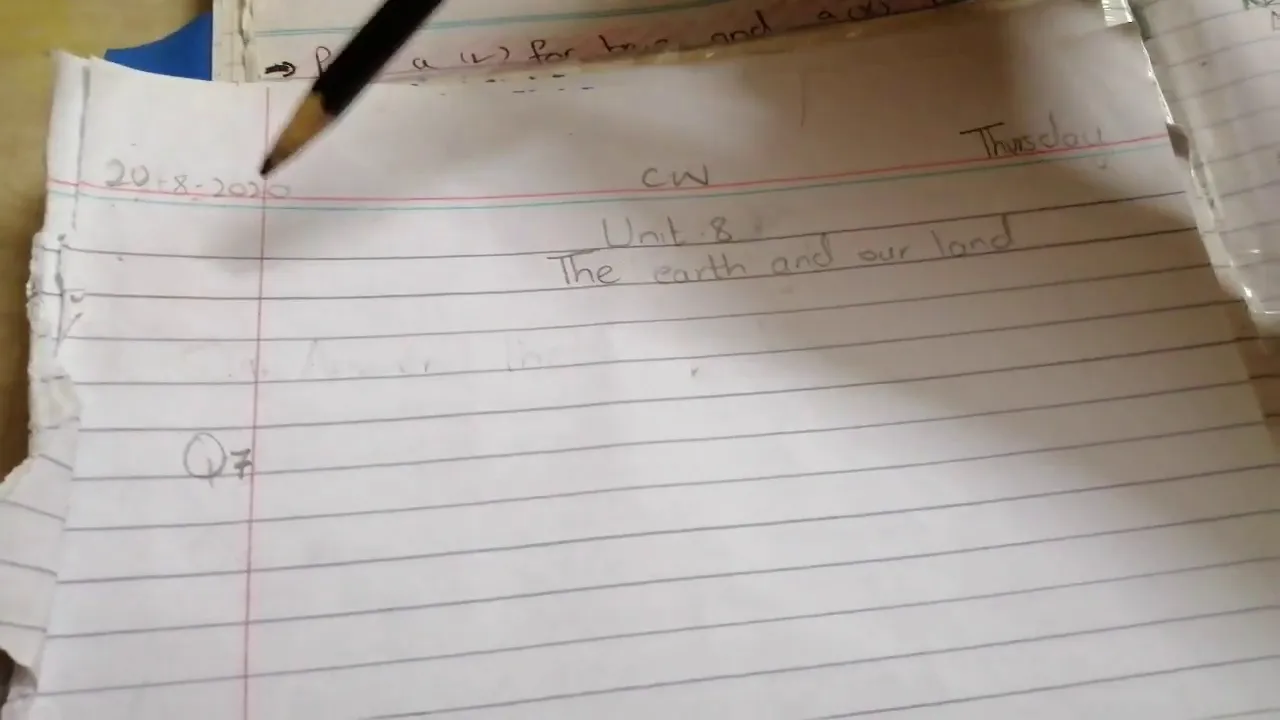 a (✓) for and a (x)
20-8-2020 CW Thursday
Unit.8
The earth and our land
Q7